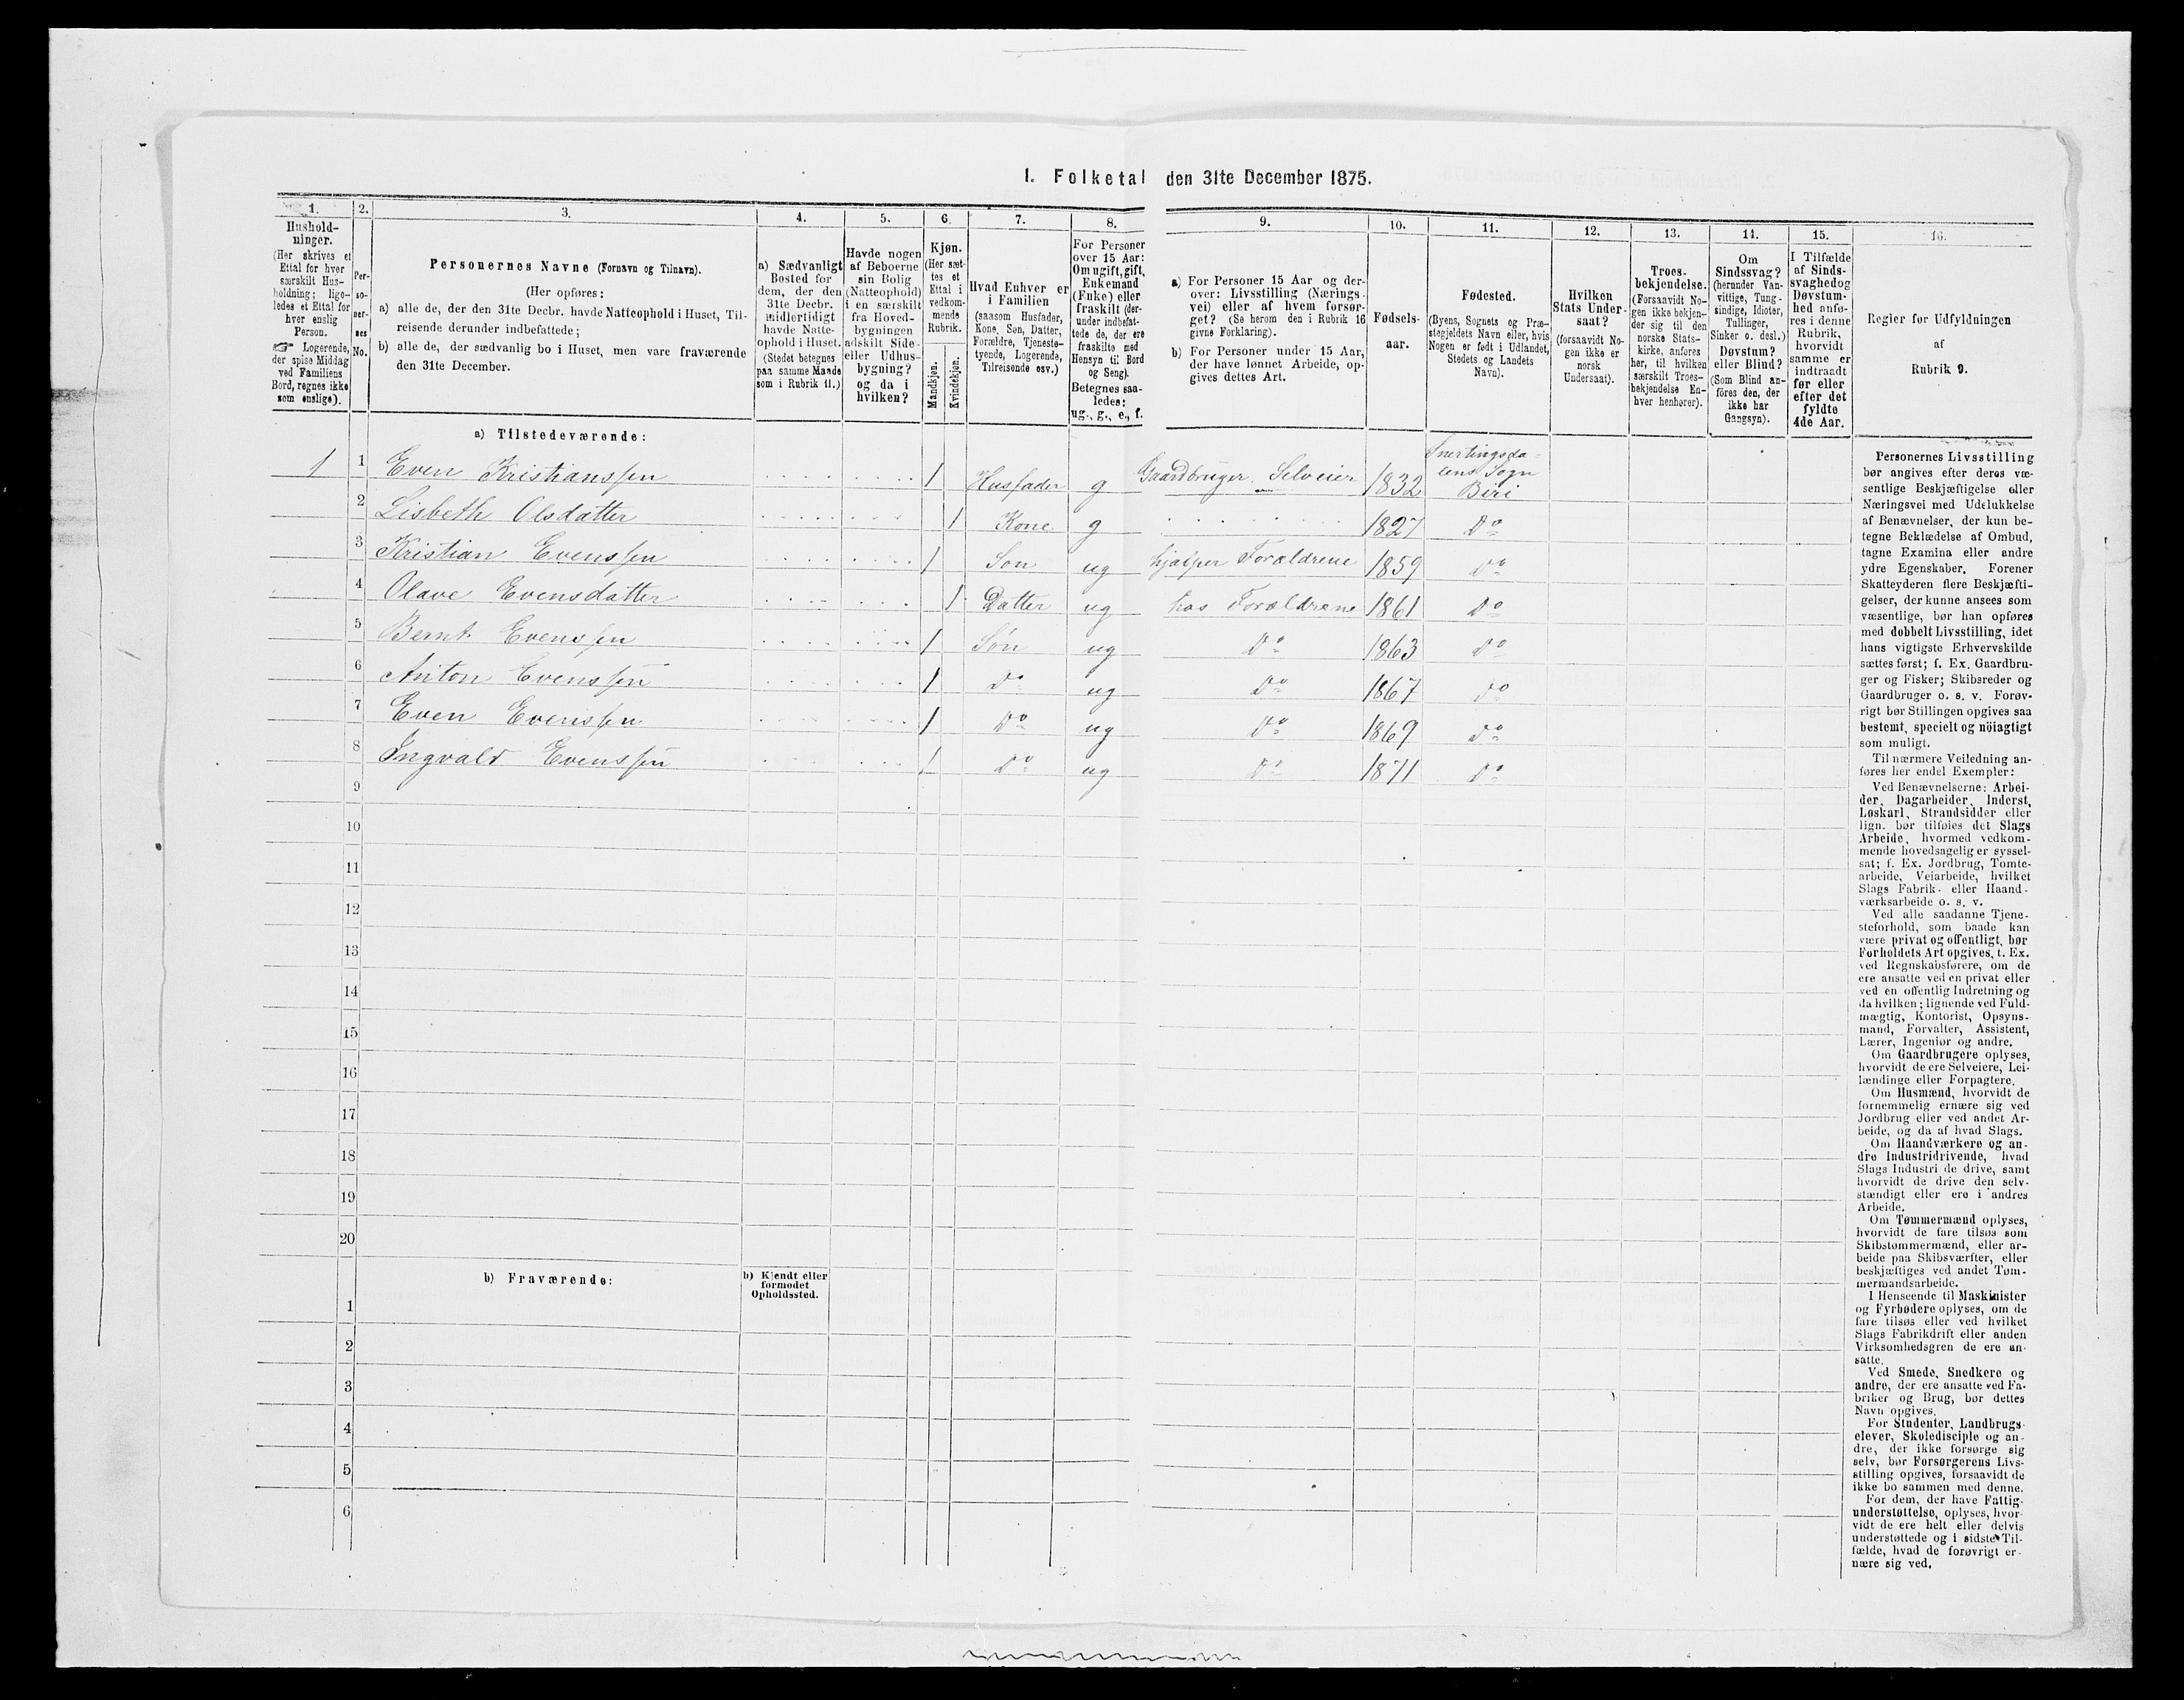 I. Folketal den 31te December 1875.
1. 2. 3. 4. 5. 6. 7. 8. 9. 10. 11. 12. 13. 14. 15. 16.
Hushold-
ninger.
(Her skrives et
Ettal for hver
særskilt Hus-
holdning; lige-
ledes et Ettal for
hver enslig
Person.
☞ Logerende,
der spise Middag
ved Familiens
Bord, regnes ikke
som enslige).
Per-
so-
ner-
nes
No.
Personernes Navne (Fornavn og Tilnavn).
(Her opføres:
a) alle de, der den 31te Decbr. havde Natteophold i Huset, Til-
reisende derunder indbefattede;
b) alle de, der sædvanlig bo i Huset, men vare fraværende
den 31te December.
a) Sædvanligt
Bosted for
dem, der den
31te Decbr.
midlertidigt
havde Natte-
ophold i Huset.
(Stedet betegnes
paa samme Maade
som i Rubrik 11.)
Havde nogen
af Beboerne
sin Bolig
(Natteophold)
i en særskilt
fra Hoved-
bygningen
adskilt Side-
eller Udhus-
bygning?
og da i
hvilken?
Kjøn.
(Her sæt-
tes et
Ettal i
vedkom-
mende
Rubrik.
Mandkjøn.
Kvindekjøn.
Hvad Enhver er
i Familien
(saasom Husfader,
Kone, Søn, Datter,
Forældre, Tjeneste-
tyende, Logerende,
Tilreisende osv.)
For Personer
over 15 Aar:
Om ugift, gift,
Enkemand
(Enke) eller
fraskilt (der-
under indbefat-
tede de, der ere
fraskilte med
Hensyn til Bord
og Seng).
Betegnes saa-
ledes:
ug., g., e., f.
a) For Personer 15 Aar og der-
over: Livsstilling (Nærings-
vei) eller af hvem forsør-
get? (Se herom den i Rubrik 16
givne Forklaring).
b) For Personer under 15 Aar,
der have lønnet Arbeide, op-
gives dettes Art.
Fødsels-
aar.
Fødested.
(Byens, Sognets og Præ-
stegjeldets Navn eller, hvis
Nogen er født i Udlandet,
Stedets og Landets
Navn).
Hvilken
Stats Under-
saat?
(forsaavidt No-
gen ikke er
norsk
Undersaat).
Troes-
bekjendelse.
(Forsaavidt No-
gen ikke bekjen-
der sig til den
norske Stats-
kirke, anføres
her, til hvilken
særskilt Troes-
bekjendelse En-
hver henhører).
Om
Sindssvag?
(herunder Van-
vittige, Tung-
sindige, Idioter,
Tullinger,
Sinker o. desl.)
Døvstum?
eller Blind?
(Som Blind an-
føres den, der
ikke har
Gangsyn).
I Tilfælde
af Sinds-
svaghed og
Døvstum-
hed anfø-
res i denne
Rubrik,
hvorvidt
samme er
indtraadt
før eller
efter det
fyldte
4de Aar.
Regler for Udfyldningen
af
Rubrik 9.
a) Tilstedeværende:
1 1 Even Kristianssen 1 Husfader g Gaardbruger. Selveier 1832 Snertingsda-
lens Sogn
Biri
2 Lisbeth Olsdatter 1 Kone g 1827 Do
3 Kristian Evenssen 1 Søn ug hjælper Forældrene 1859 Do
4 Olave Evensdatter 1 Datter ug hos Forældrene 1861 Do
5 Bernt Evenssen 1 Søn ug Do 1863 Do
6 Anton Evenssen 1 Do ug Do 1867 Do
7 Even Evenssen 1 Do ug Do 1869 Do
8 Ingvald Evenssen 1 Do ug Do 1871 Do
9
10
11
12
13
14
15
16
17
18
19
20
b) Fraværende:
b) Kjendt eller
formodet
Opholdssted.
1
2
3
4
5
6
Personernes Livsstilling
bør angives efter deres væ-
sentlige Beskjæftigelse eller
Næringsvei med Udelukkelse
af Benævnelser, der kun be-
tegne Beklædelse af Ombud,
tagne Examina eller andre
ydre Egenskaber. Forener
Skatteyderen flere Beskjæfti-
gelser, der kunne ansees som
væsentlige, bør han opføres
med dobbelt Livsstilling, idet
hans vigtigste Erhvervskilde
sættes først; f. Ex. Gaardbru-
ger og Fisker; Skibsreder og
Gaardbruger o. s. v. Forøv-
rigt bør Stillingen opgives saa
bestemt, specielt og nöiagtigt
som muligt.
Til nærmere Veiledning an-
føres her endel Exempler:
Ved Benævnelserne: Arbei-
der, Dagarbeider, Inderst,
Løskarl, Strandsidder eller
lign. bør tilføies det Slags
Arbeide, hvormed vedkom-
mende hovedsagelig er syssel-
sat; f. Ex. Jordbrug, Tomte-
arbeide, Veiarbeide, hvilket
Slags Fabrik- eller Haand-
værksarbeide o. s. v.
Ved alle saadanne Tjene-
steforhold, som baade kan
være privat og offentligt, bør
Forholdets Art opgives, t. Ex.
ved Regnskabsførere, om de
ere ansatte ved en privat eller
ved en offentlig Indretning og
da hvilken; lignende ved Fuld-
mægtig, Kontorist, Opsyns-
mand, Forvalter, Assistent,
Lærer, Ingeniør og andre.
Om Gaardbrugere oplyses,
hvorvidt de ere Selveiere, Lei-
lændinge eller Forpagtere.
Om Husmænd, hvorvidt de
fornemmelig ernære sig ved
Jordbrug eller ved andet Ar-
beide, og da af hvad Slags.
Om Haandværkere og an-
dre Industridrivende, hvad
Slags Industri de drive, samt
hvorvidt de drive den selv-
stændigt eller ere i andres
Arbeide.
Om Tømmermænd oplyses,
hvorvidt de fare tilsøs som
Skibstømmermænd, eller ar-
beide paa Skibsværfter, eller
beskjæftiges ved andet Tøm-
mermandsarbeide.
I Henseende til Maskinister
og Fyrbødere oplyses, om de
fare tilsøs eller ved hvilket
Slags Fabrikdrift eller anden
Virksomhedsgren de ere an-
satte.
Ved Smede, Snedkere og
andre, der ere ansatte ved Fa-
briker og Brug, bør dettes
Navn opgives.
For Studenter, Landbrugs-
elever, Skoledisciple og an-
dre, der ikke forsørge sig
selv, bør Forsørgerens Livs-
stilling opgives, forsaavidt de
ikke bo sammen med denne.
For dem, der have Fattig-
understøttelse, oplyses, hvor-
vidt de ere helt eller delvis
understøttede og i sidste Til-
fælde, hvad de forøvrigt er-
nære sig ved.